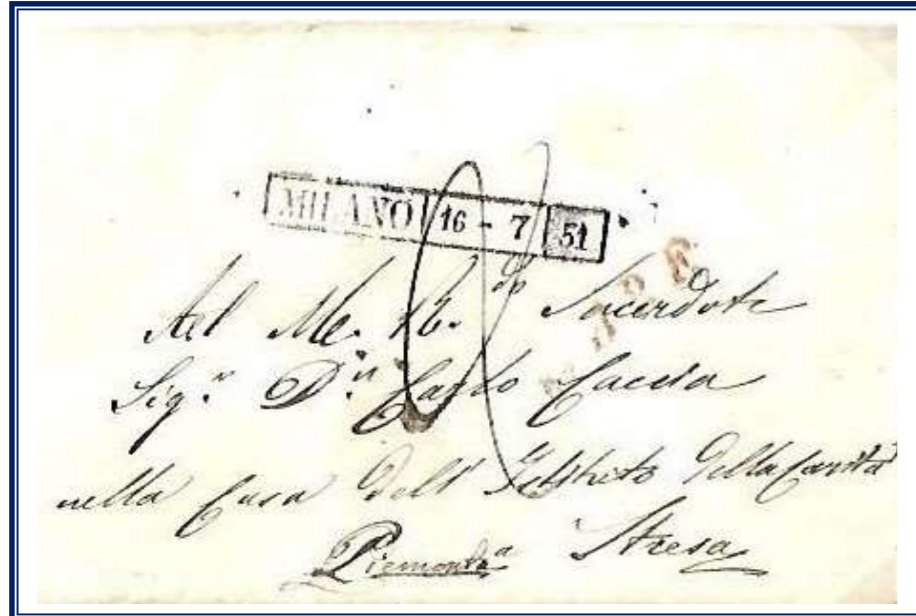 MILANO 16 - 7 51
Al M. R.do Sacerdote
Sig.r D.n Carlo Caccia
nella Casa dell' Istituto della Carità
Stresa